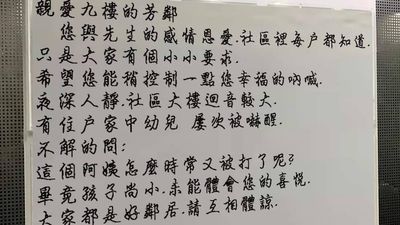 親愛九樓的芳鄰
您與先生的感情恩愛.社區裡每户都知道.
只是大家有個小小要求.
希望您能稍控制一點您幸福的吶喊.
夜深人靜.社區大樓迴音較大.
有住户家中幼兒 屢次被嚇醒.
不解的問:
這個阿姨怎麼時常又被打了呢?
畢竟孩子尚小.未能體會您的喜悅.
大家都是好鄰居.請互相體諒.